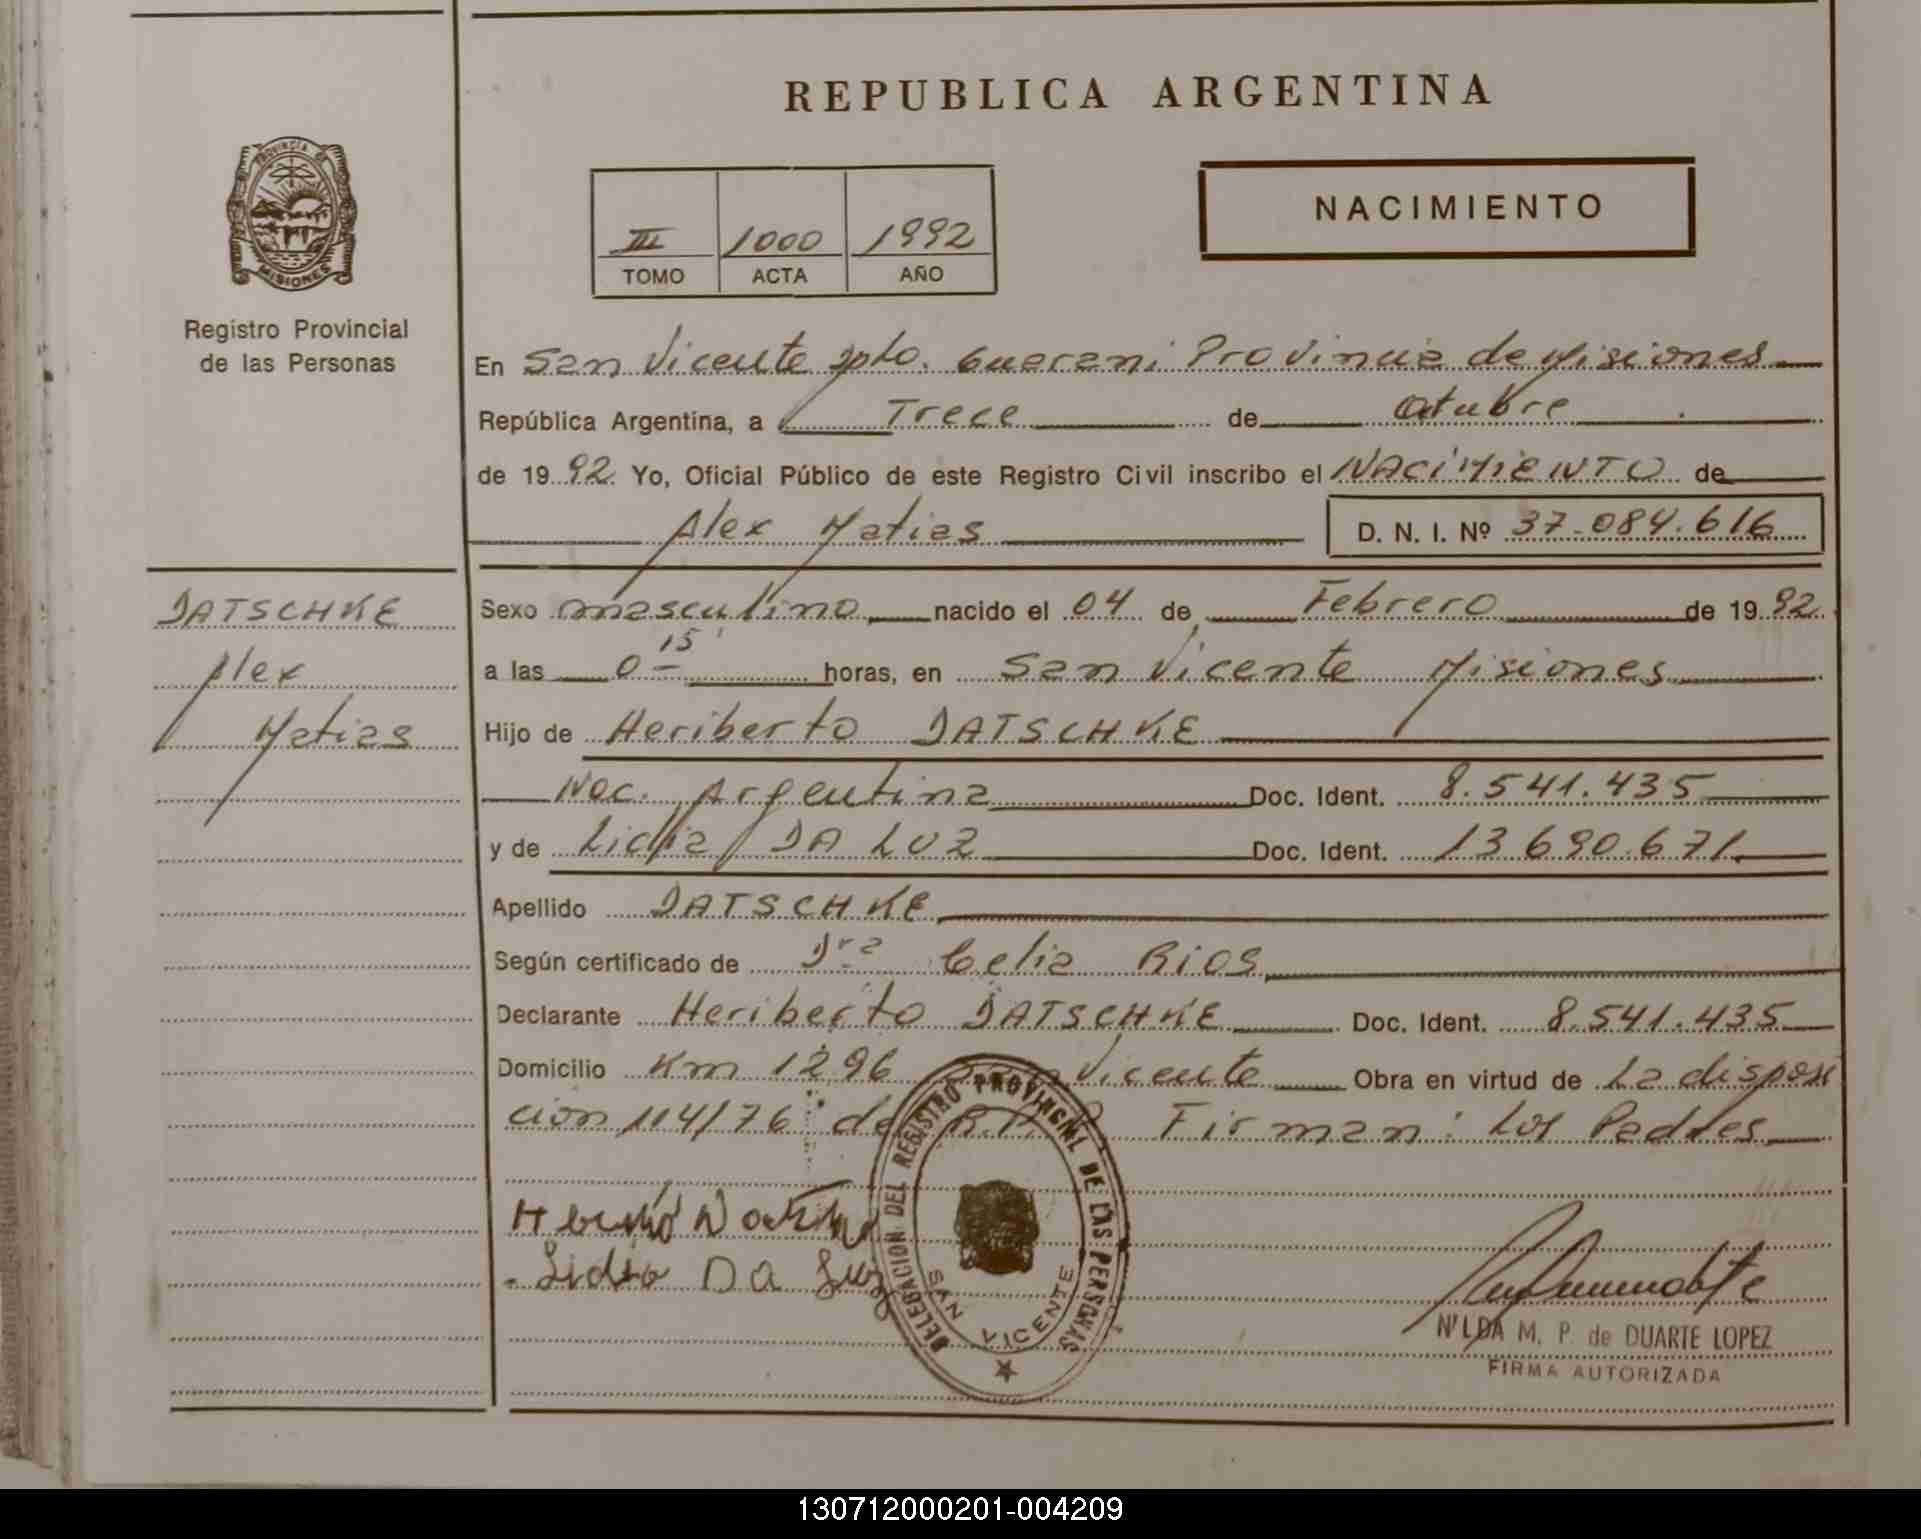 REPUBLICA ARGENTINA
PROVINCIA DE
MISIONES
Registro Provincial
de las Personas
NACIMIENTO
III 1000 1992
TOMO ACTA AÑO
En San Vicente Dpto. Guarani Provincia de Misiones
República Argentina, a Trece de Octubre
de 1992 Yo, Oficial Público de este Registro Civil inscribo el NACIMIENTO de
Alex Matias D. N. I. Nº 37.084.616
DATSCHKE
Alex
Matias
Sexo masculino nacido el 04 de Febrero de 1992
a las 0 15 horas, en San Vicente Misiones
Hijo de Heriberto DATSCHKE
Nac. Argentina Doc. Ident. 8.541.435
y de Lidia DA LUZ Doc. Ident. 13.690.671
Apellido DATSCHKE
Según certificado de Dra Celia Rios
Declarante Heriberto DATSCHKE Doc. Ident. 8.541.435
Domicilio Km 1296 Vicente Obra en virtud de La disposi
cion 114/76 del Firman: Los Padres
Lidia Da Luz
DELEGACION DEL REGISTRO PROVINCIAL DE LAS PERSONAS
SAN VICENTE
NILDA M. P. de DUARTE LOPEZ
FIRMA AUTORIZADA
130712000201-004209